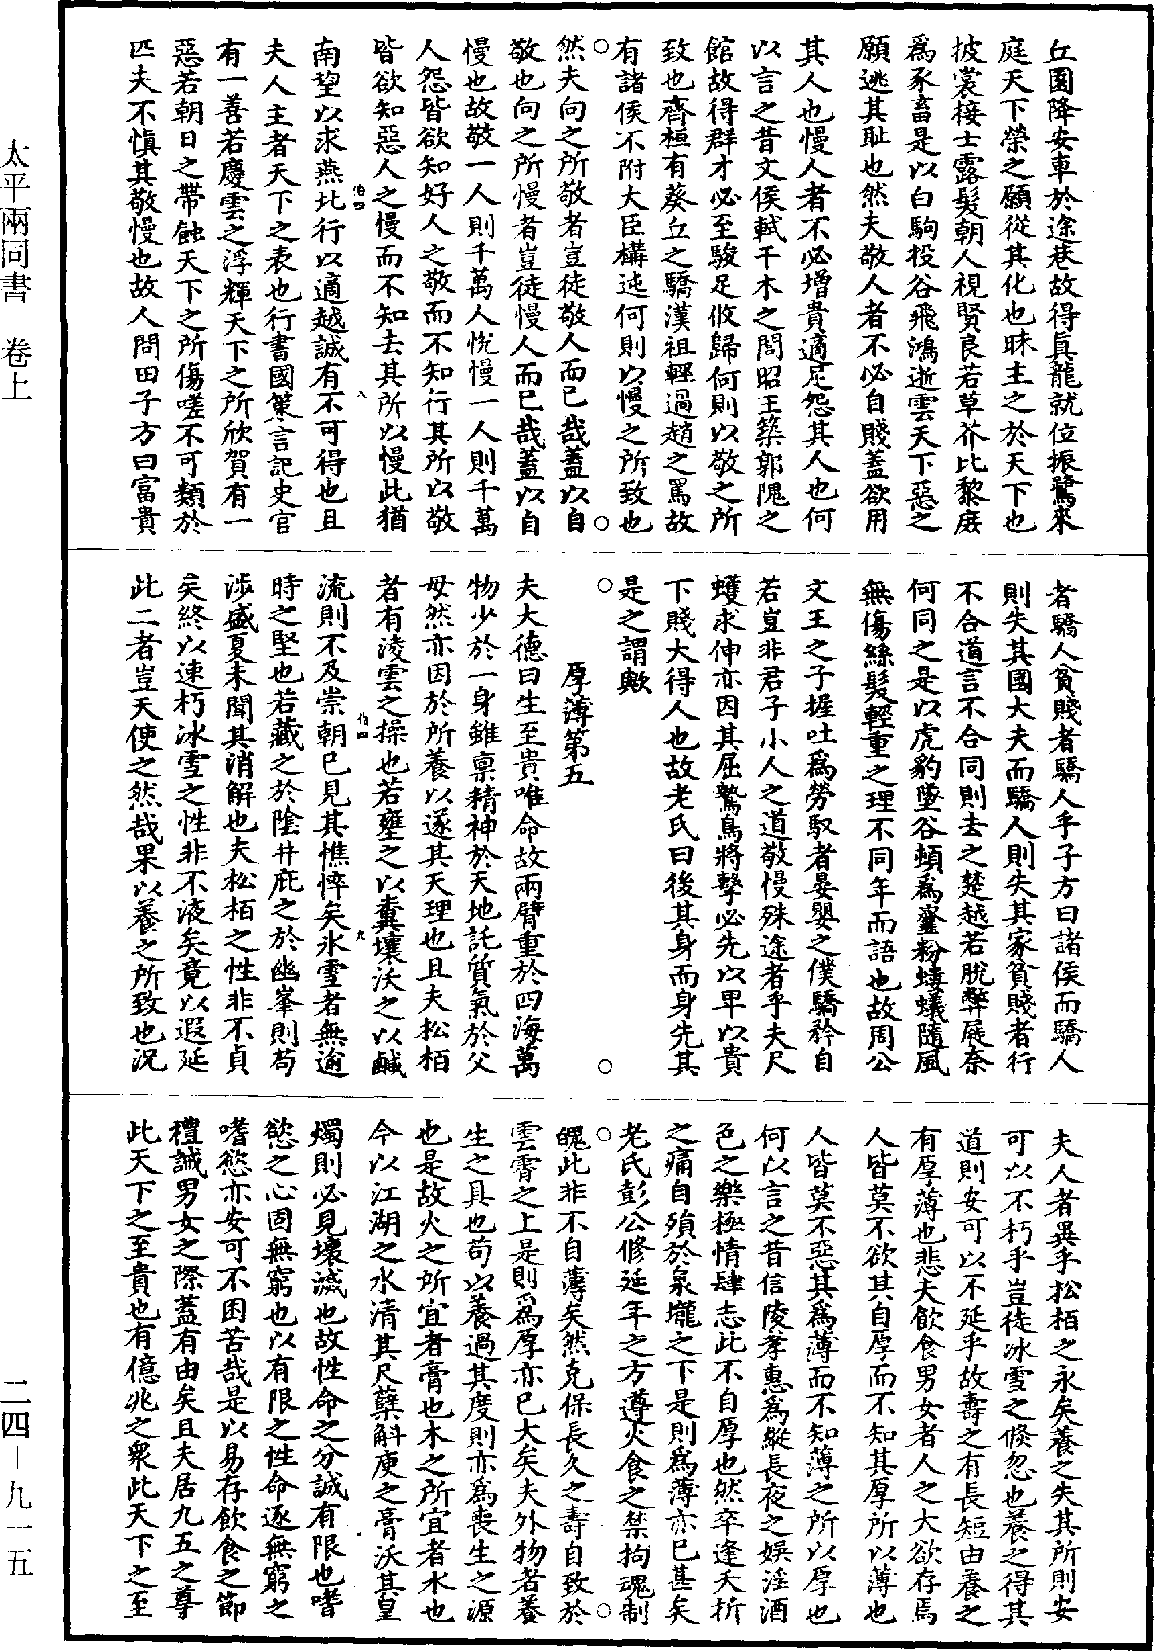 丘園降安車於途巷故得真龍就位振鷺來
庭天下榮之願從其化也昧主之於天下也
披裳接士露髮朝人視賢良若草芥比黎庶
爲豕畜是以白駒投谷飛鴻逝雲天下惡之
願逃其恥也然夫敬人者不必自賤蓋欲用
其人也慢人者不必增貴適足怨其人也何
以言之昔文侯軾干木之閭昭王築郭隗之
館故得群才必至駿足攸歸何則以敬之所
致也齊桓有葵丘之驕漢祖輕過趙之罵故
有諸侯不附大臣構逆何則以慢之所致也
然夫向之所敬者豈徒敬人而已哉蓋以自
敬也向之所慢者豈徒慢人而已哉蓋以自
慢也故敬一人則千萬人悅慢一人則千萬
人怨皆欲知好人之敬而不知行其所以敬
皆欲知惡人之慢而不知去其所以慢此猶
伯四
八
南望以求燕北行以適越誠有不可得也且
夫人主者天下之表也行書國策言記史官
有一善若慶雲之浮輝天下之所欣賀有一
惡若朝日之帶蝕天下之所傷嗟不可類於
匹夫不慎其敬慢也故人問田子方曰富貴
者驕人貧賤者驕人乎子方曰諸侯而驕人
則失其國大夫而驕人則失其家貧賤者行
不合道言不合同則去之楚越若脫弊屣奈
何同之是以虎豹墜谷頓爲齏粉螻蟻隨風
無傷絲髮輕重之理不同年而語也故周公
文王之子握吐爲勞馭者晏嬰之僕驕矜自
若豈非君子小人之道敬慢殊途者乎夫尺
蠖求伸亦因其屈鷙鳥將擊必先以卑以貴
下賤大得人也故老氏曰後其身而身先其
是之謂歟
厚薄第五
夫大德曰生至貴唯命故兩臂重於四海萬
物少於一身雖稟精神於天地託質氣於父
母然亦因於所養以遂其天理也且夫松栢
者有淩雲之操也若壅之以糞壤沃之以鹹
伯四
九
流則不及崇朝已見其憔悴矣氷雪者無逾
時之堅也若藏之於陰井庇之於幽峯則苟
涉盛夏未聞其消解也夫松栢之性非不貞
矣終以速朽冰雪之性非不液矣竟以遐延
此二者豈天使之然哉果以養之所致也況
夫人者異乎松栢之永矣養之失其所則安
可以不朽乎豈徒冰雪之倏忽也養之得其
道則安可以不延乎故壽之有長短由養之
有厚薄也悲夫飲食男女者人之大欲存焉
人皆莫不欲其自厚而不知其厚所以薄也
人皆莫不惡其爲薄而不知薄之所以厚也
何以言之昔信陵孝惠爲縱長夜之娛淫酒
色之樂極情肆志此不自厚也然卒逢夭折
之痛自殞於泉壠之下是則爲薄亦已甚矣
老氏彭公修延年之方遵火食之禁拘魂制
魄此非不自薄矣然克保長久之壽自致於
雲霄之上是則爲厚亦已大矣夫外物者養
生之具也苟以養過其度則亦爲喪生之源
也是故火之所宜者膏也木之所宜者水也
今以江湖之水清其尺蘖斛庾之膏沃其皇
燭則必見壞滅也故性命之分誠有限也嗜
慾之心固無窮也以有限之性命逐無窮之
嗜慾亦安可不困苦哉是以易存飲食之節
禮誡男女之際蓋有由矣且夫居九五之尊
此天下之至貴也有億兆之衆此天下之至
太平兩同書 卷上
二四—九一五